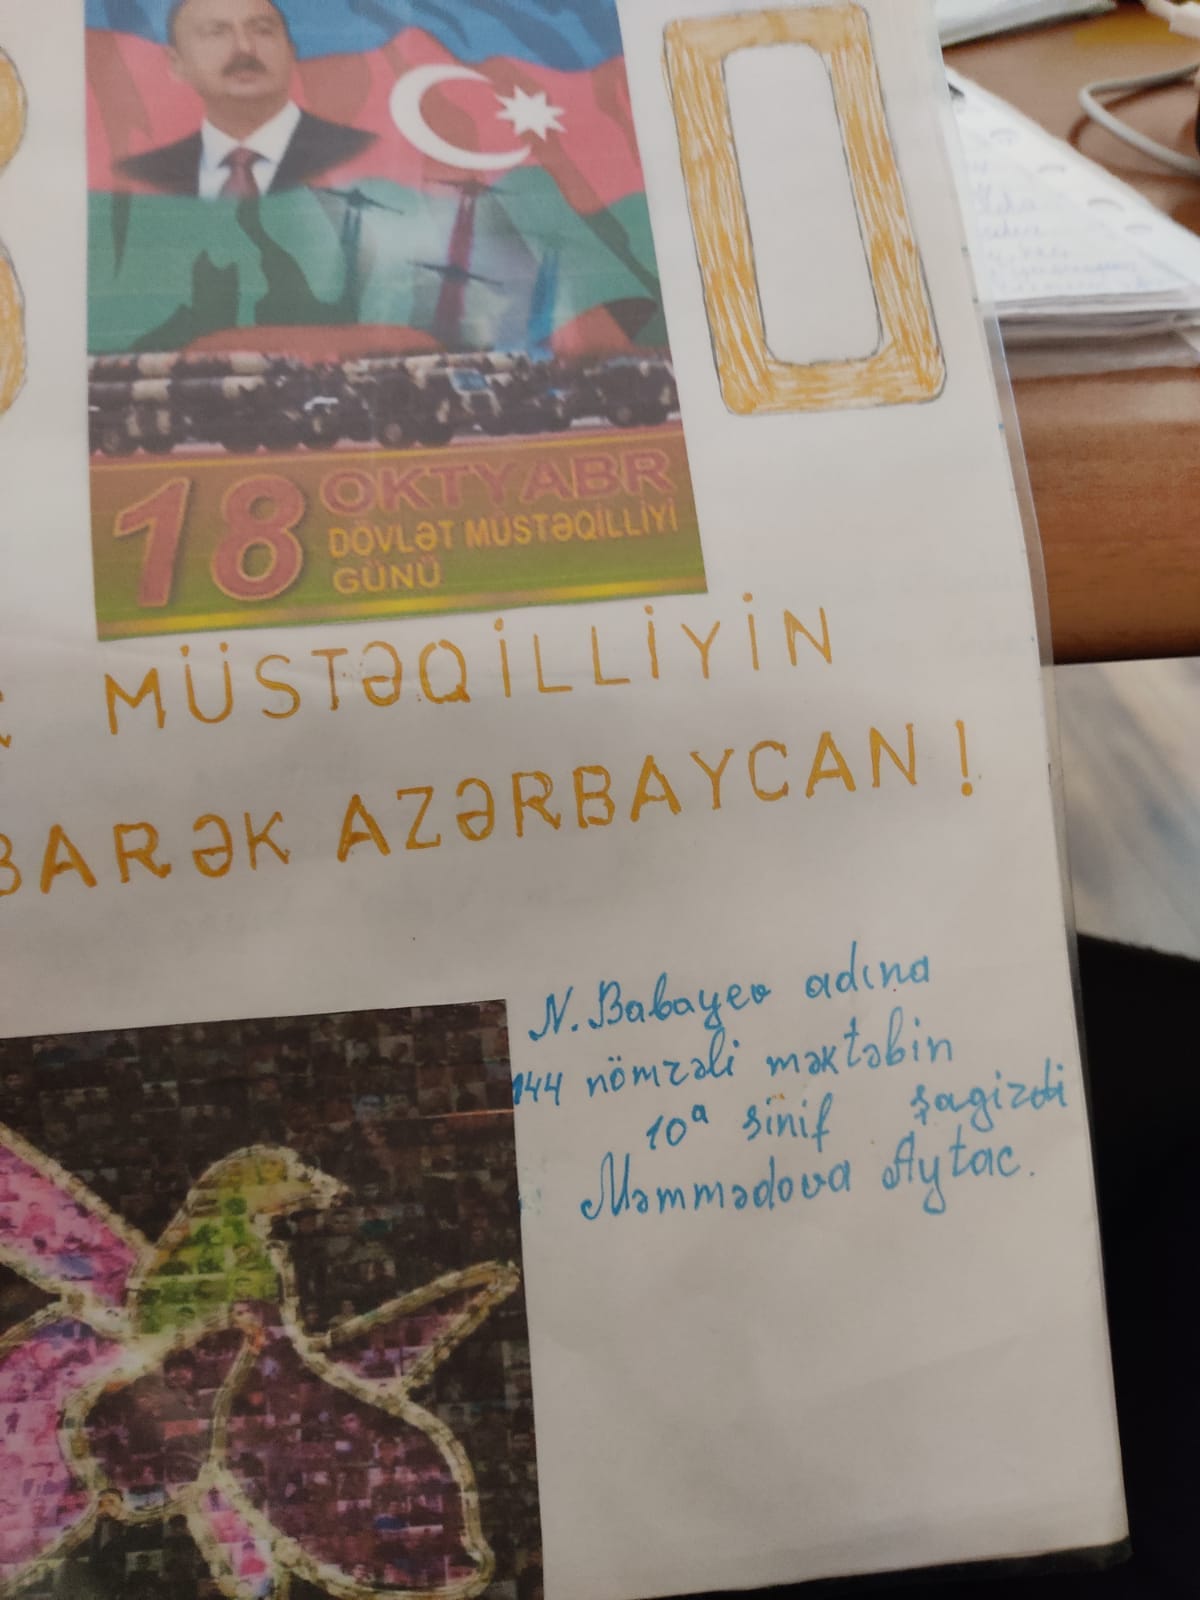 0
18 OKTYABR
DÖVLƏT MÜSTƏQİLLİYİ
GÜNÜ
MÜSTƏQİLLİYİN
BARƏK AZƏRBAYCAN!
N. Babayev adına
144 nömrəli məktəbin
10ᵃ sinif şagirdi
Məmmədova Aytac.